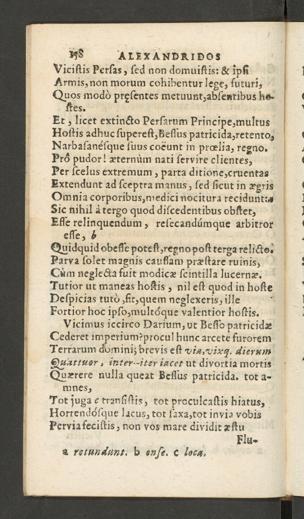 178 ALEXANDRIDOS
Vicistis Persas, sed non domuistis: & ipsi
Armis, non morum cohibentur lege, futuri,
Quos modò præsentes metuunt, absentibus ho-
stes.
Et, licet extincto Persarum Principe, multus
Hostis adhuc superest, Bessus patricida, retento,
Narbasanésque suus coëunt in prœlia, regno.
Prô pudor! æternùm nati servire clientes,
Per scelus extremum, parta ditione, cruentas
Extendunt ad sceptra manus, sed sicut in ægris
Omnia corporibus, medici nocitura recidunt: a
Sic nihil à tergo quod discedentibus obstet,
Esse relinquendum, resecandúmque arbitror
esse, b
Quidquid obesse potest, regno post terga relicto.
Parva solet magnis caussam præstare ruinis,
Cùm neglecta fuit modicæ scintilla lucernæ.
Tutior ut maneas hostis, nil est quod in hoste
Despicias tutò, fit, quem neglexeris, ille
Fortior hoc ipso, multóque valentior hostis.
Vicimus iccirco Darium, ut Besso patricidæ
Cederet imperium? procul hunc arcete furorem
Terrarum domini; brevis est via, vixq. dierum
Quattuor, inter--iter iacet ut divortia mortis
Quærere nulla queat Bessus patricida. tot a-
mnes,
Tot juga c transistis, tot proculcastis hiatus,
Horrendósque lacus, tot saxa, tot invia vobis
Pervia fecistis, non vos mare dividit æstu
Flu-
a retundunt. b ense. c loca.